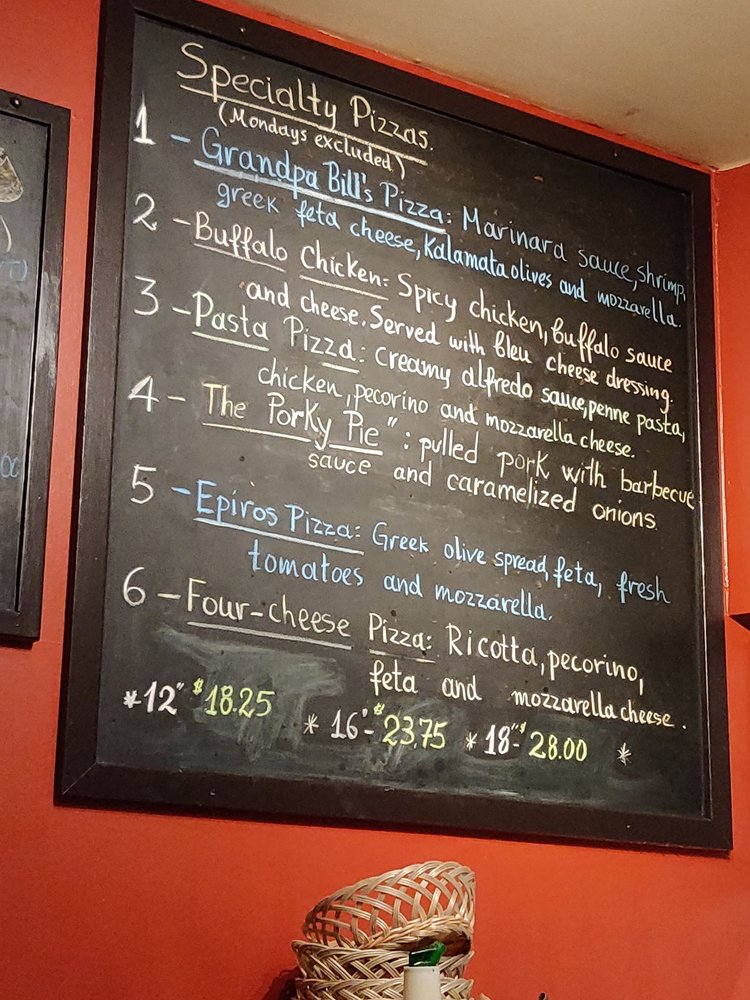 Specialty Pizzas.
(Mondays excluded)
1 - Grandpa Bill's Pizza: Marinara sauce, shrimp,
greek feta cheese, Kalamata olives and mozzarella.
2 - Buffalo Chicken: Spicy chicken, Buffalo sauce
and cheese. Served with Bleu cheese dressing.
3 - Pasta Pizza: Creamy alfredo sauce, penne pasta,
chicken, pecorino and mozzarella cheese.
4 - The Porky Pie": pulled pork with barbecue
sauce and caramelized onions
5 - Epiros Pizza: Greek olive spread, feta, fresh
tomatoes and mozzarella.
6 - Four-cheese Pizza: Ricotta, pecorino,
feta and mozzarella cheese.
*12" $18.25 * 16"- $23.75 * 18"- $28.00 *